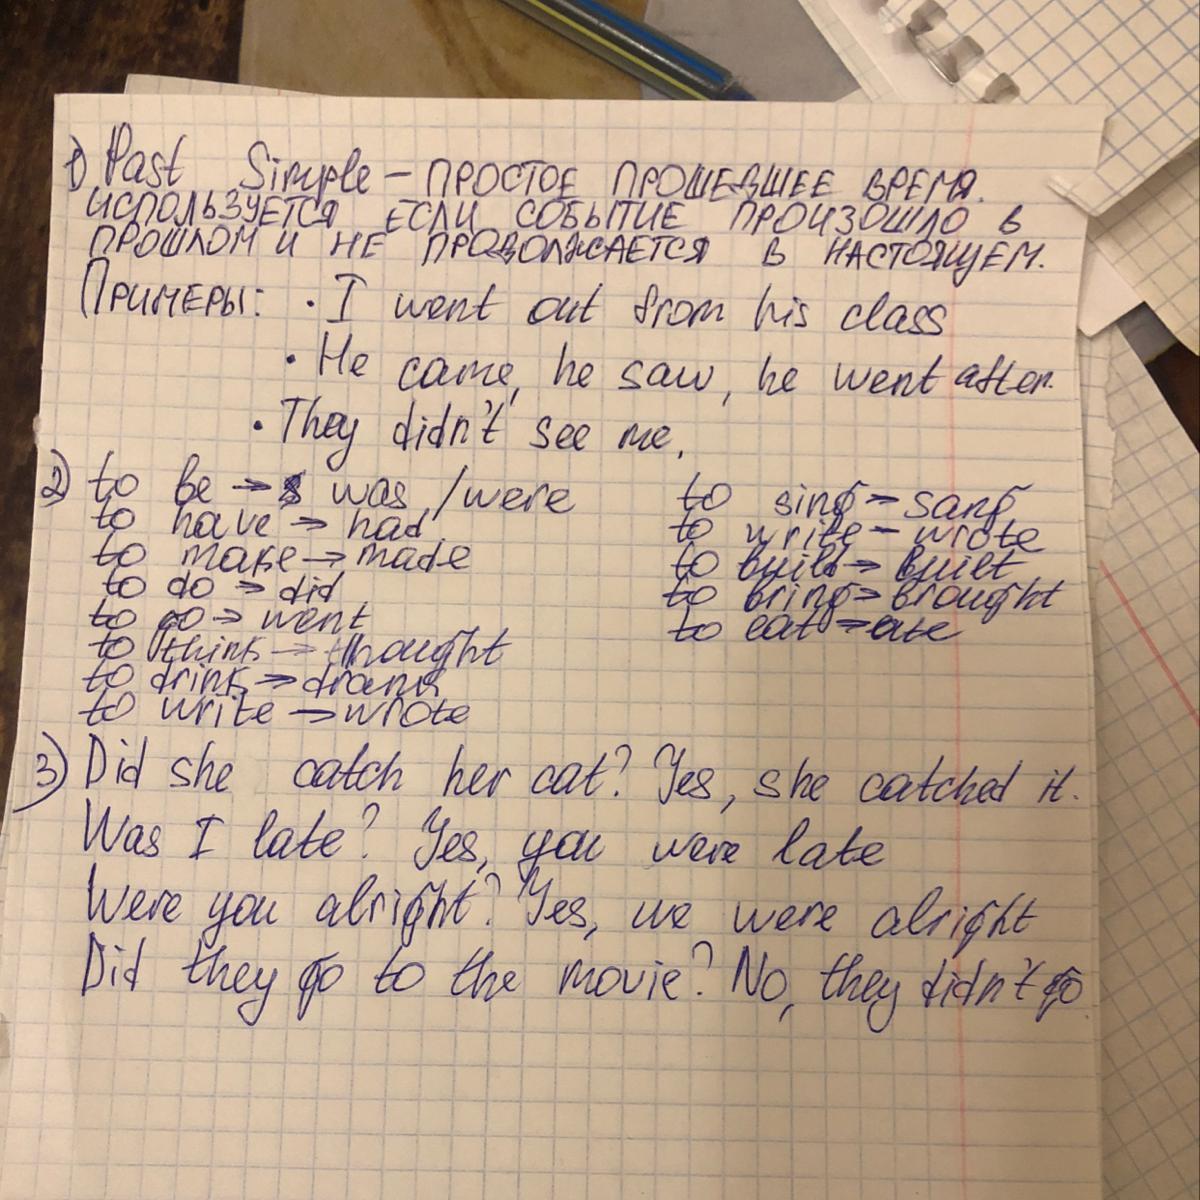 1) Past Simple – ПРОСТОЕ ПРОШЕДШЕЕ ВРЕМЯ.
ИСПОЛЬЗУЕТСЯ ЕСЛИ СОБЫТИЕ ПРОИЗОШЛО В
ПРОШЛОМ И НЕ ПРОДОЛЖАЕТСЯ В НАСТОЯЩЕМ.
ПРИМЕРЫ: • I went out from his class
• He came, he saw, he went after.
• They didn't see me.
2) to be → was/were
to have → had
to make → made
to do → did
to go → went
to think → thought
to drink → drank
to write → wrote
to sing → sang
to write – wrote
to built → built
to bring → brought
to eat → ate
3) Did she catch her cat? Yes, she catched it.
Was I late? Yes, you were late
Were you alright? Yes, we were alright
Did they go to the movie? No, they didn't go